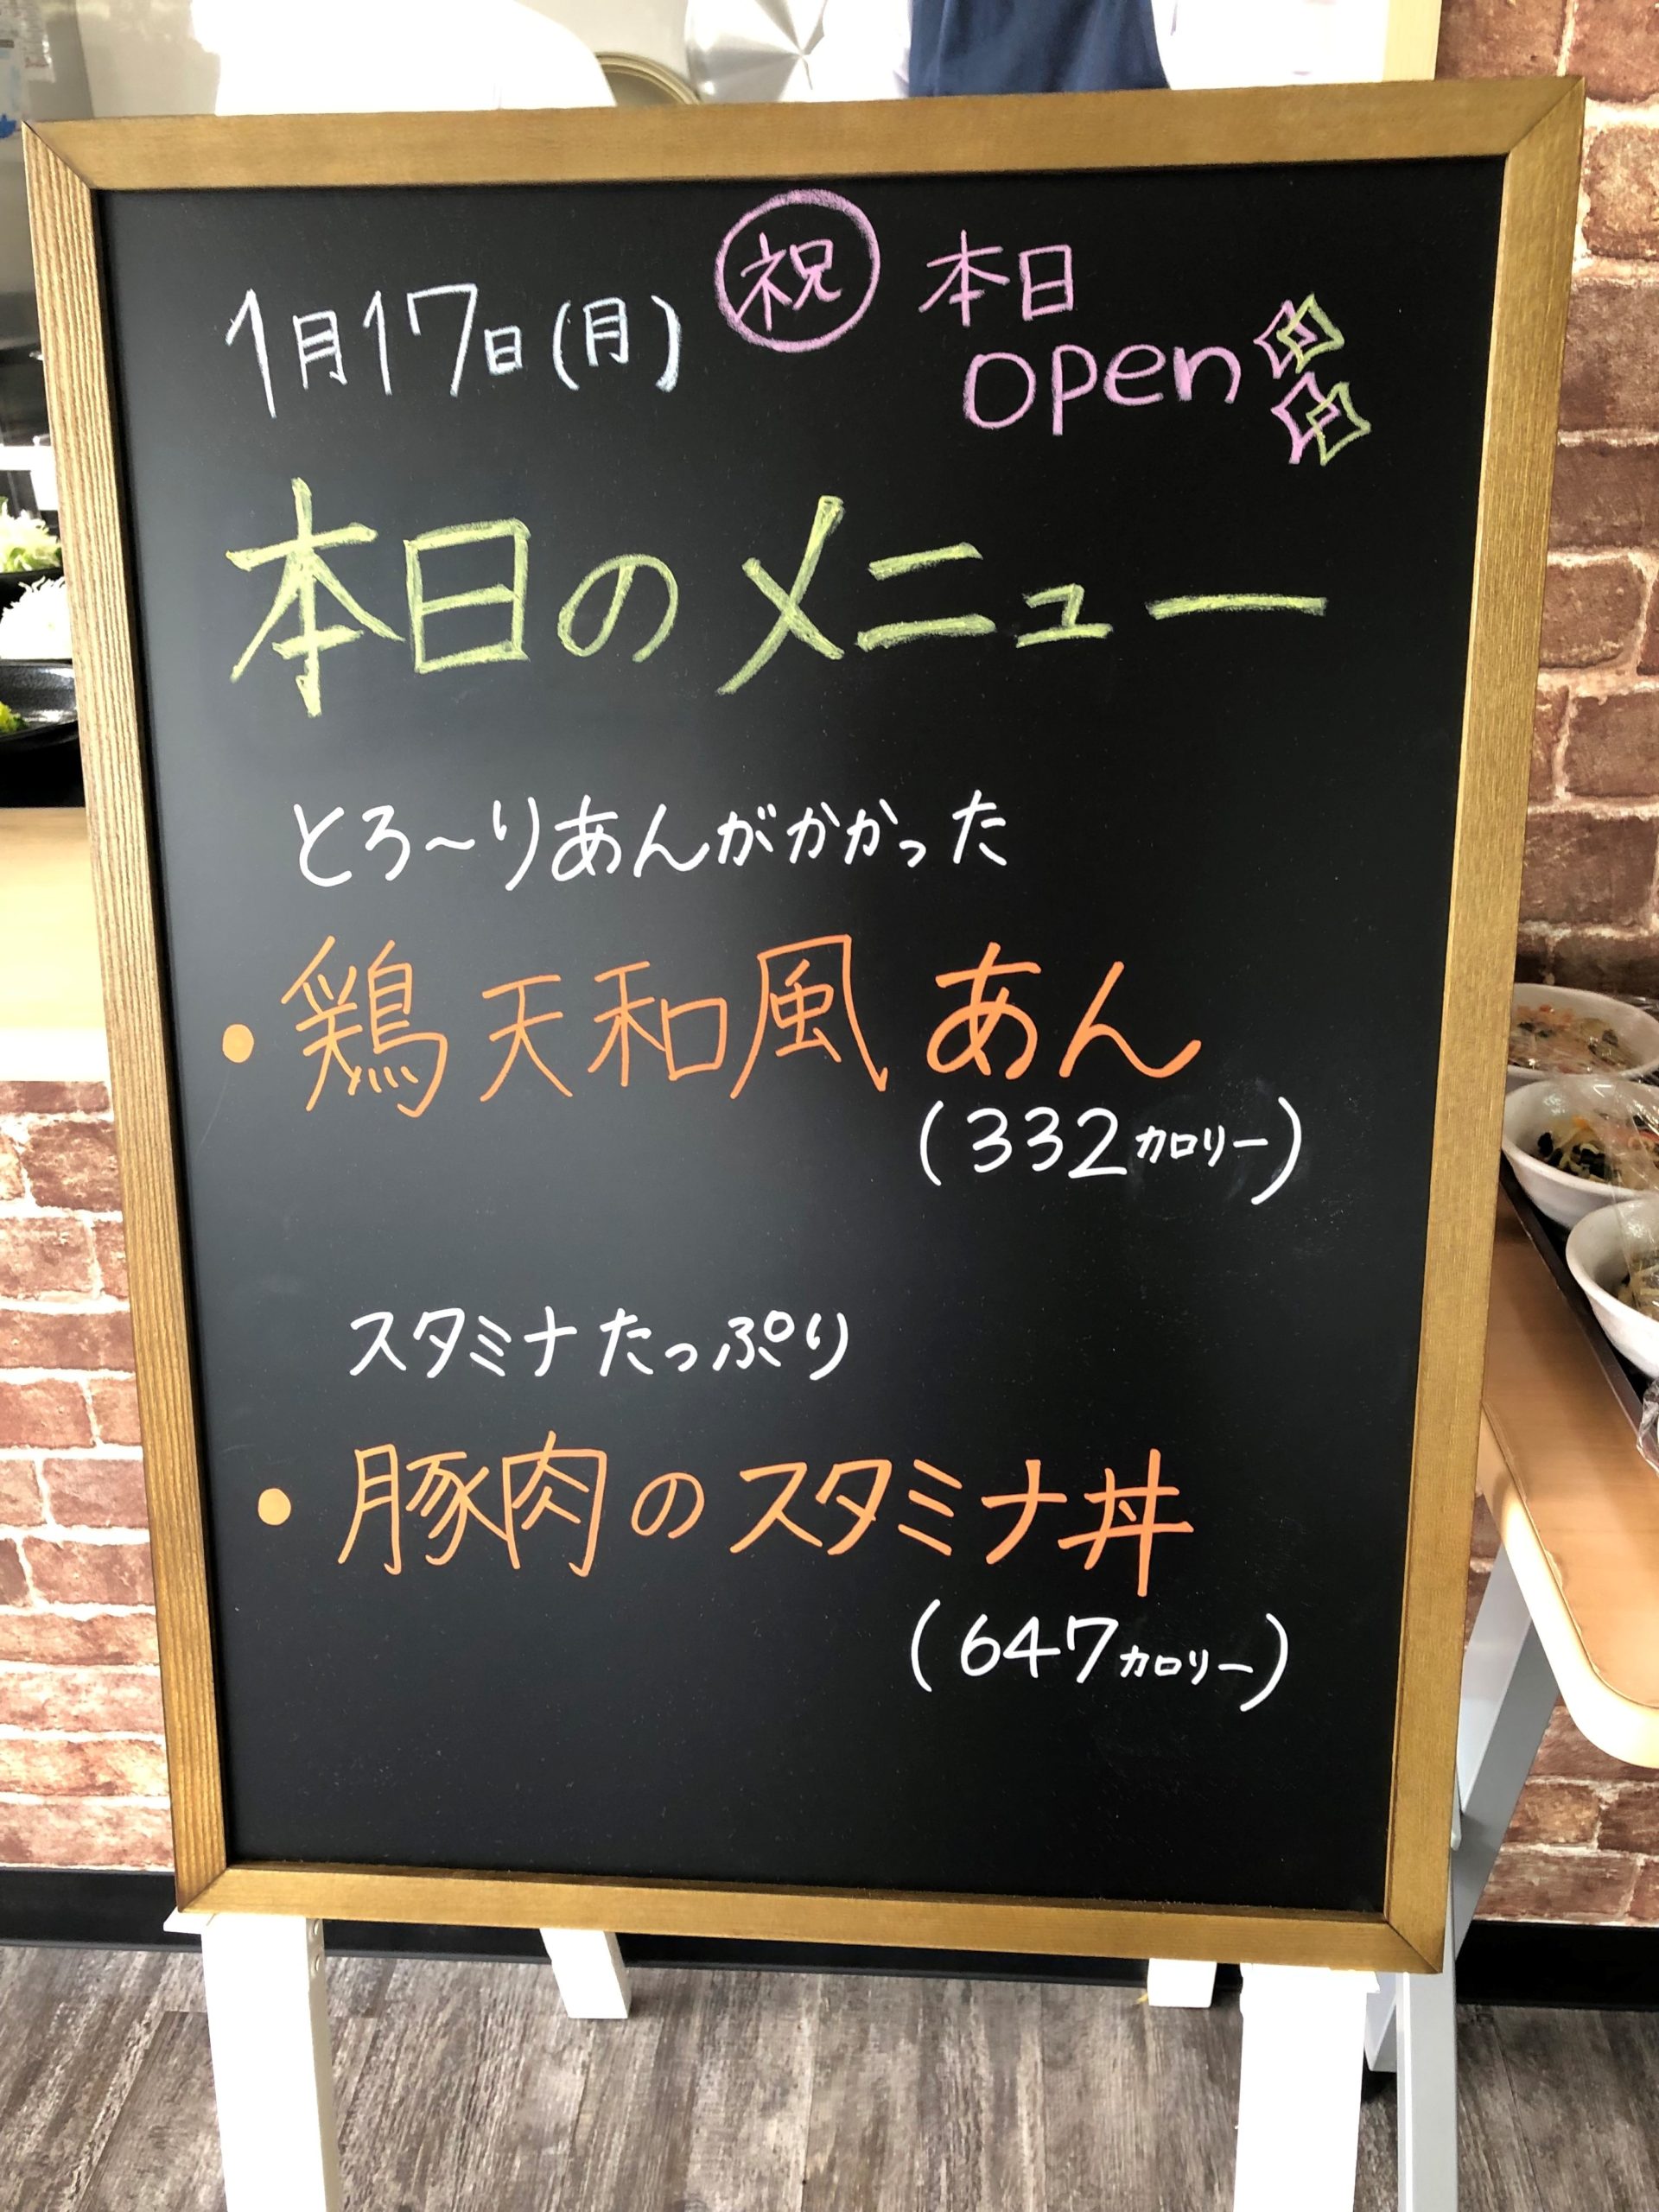 1月17日(月) ㊗ 本日
open
本日のメニュー
とろ〜りあんがかかった
・鶏天和風あん
(332カロリー)
スタミナたっぷり
・豚肉のスタミナ丼
(647カロリー)